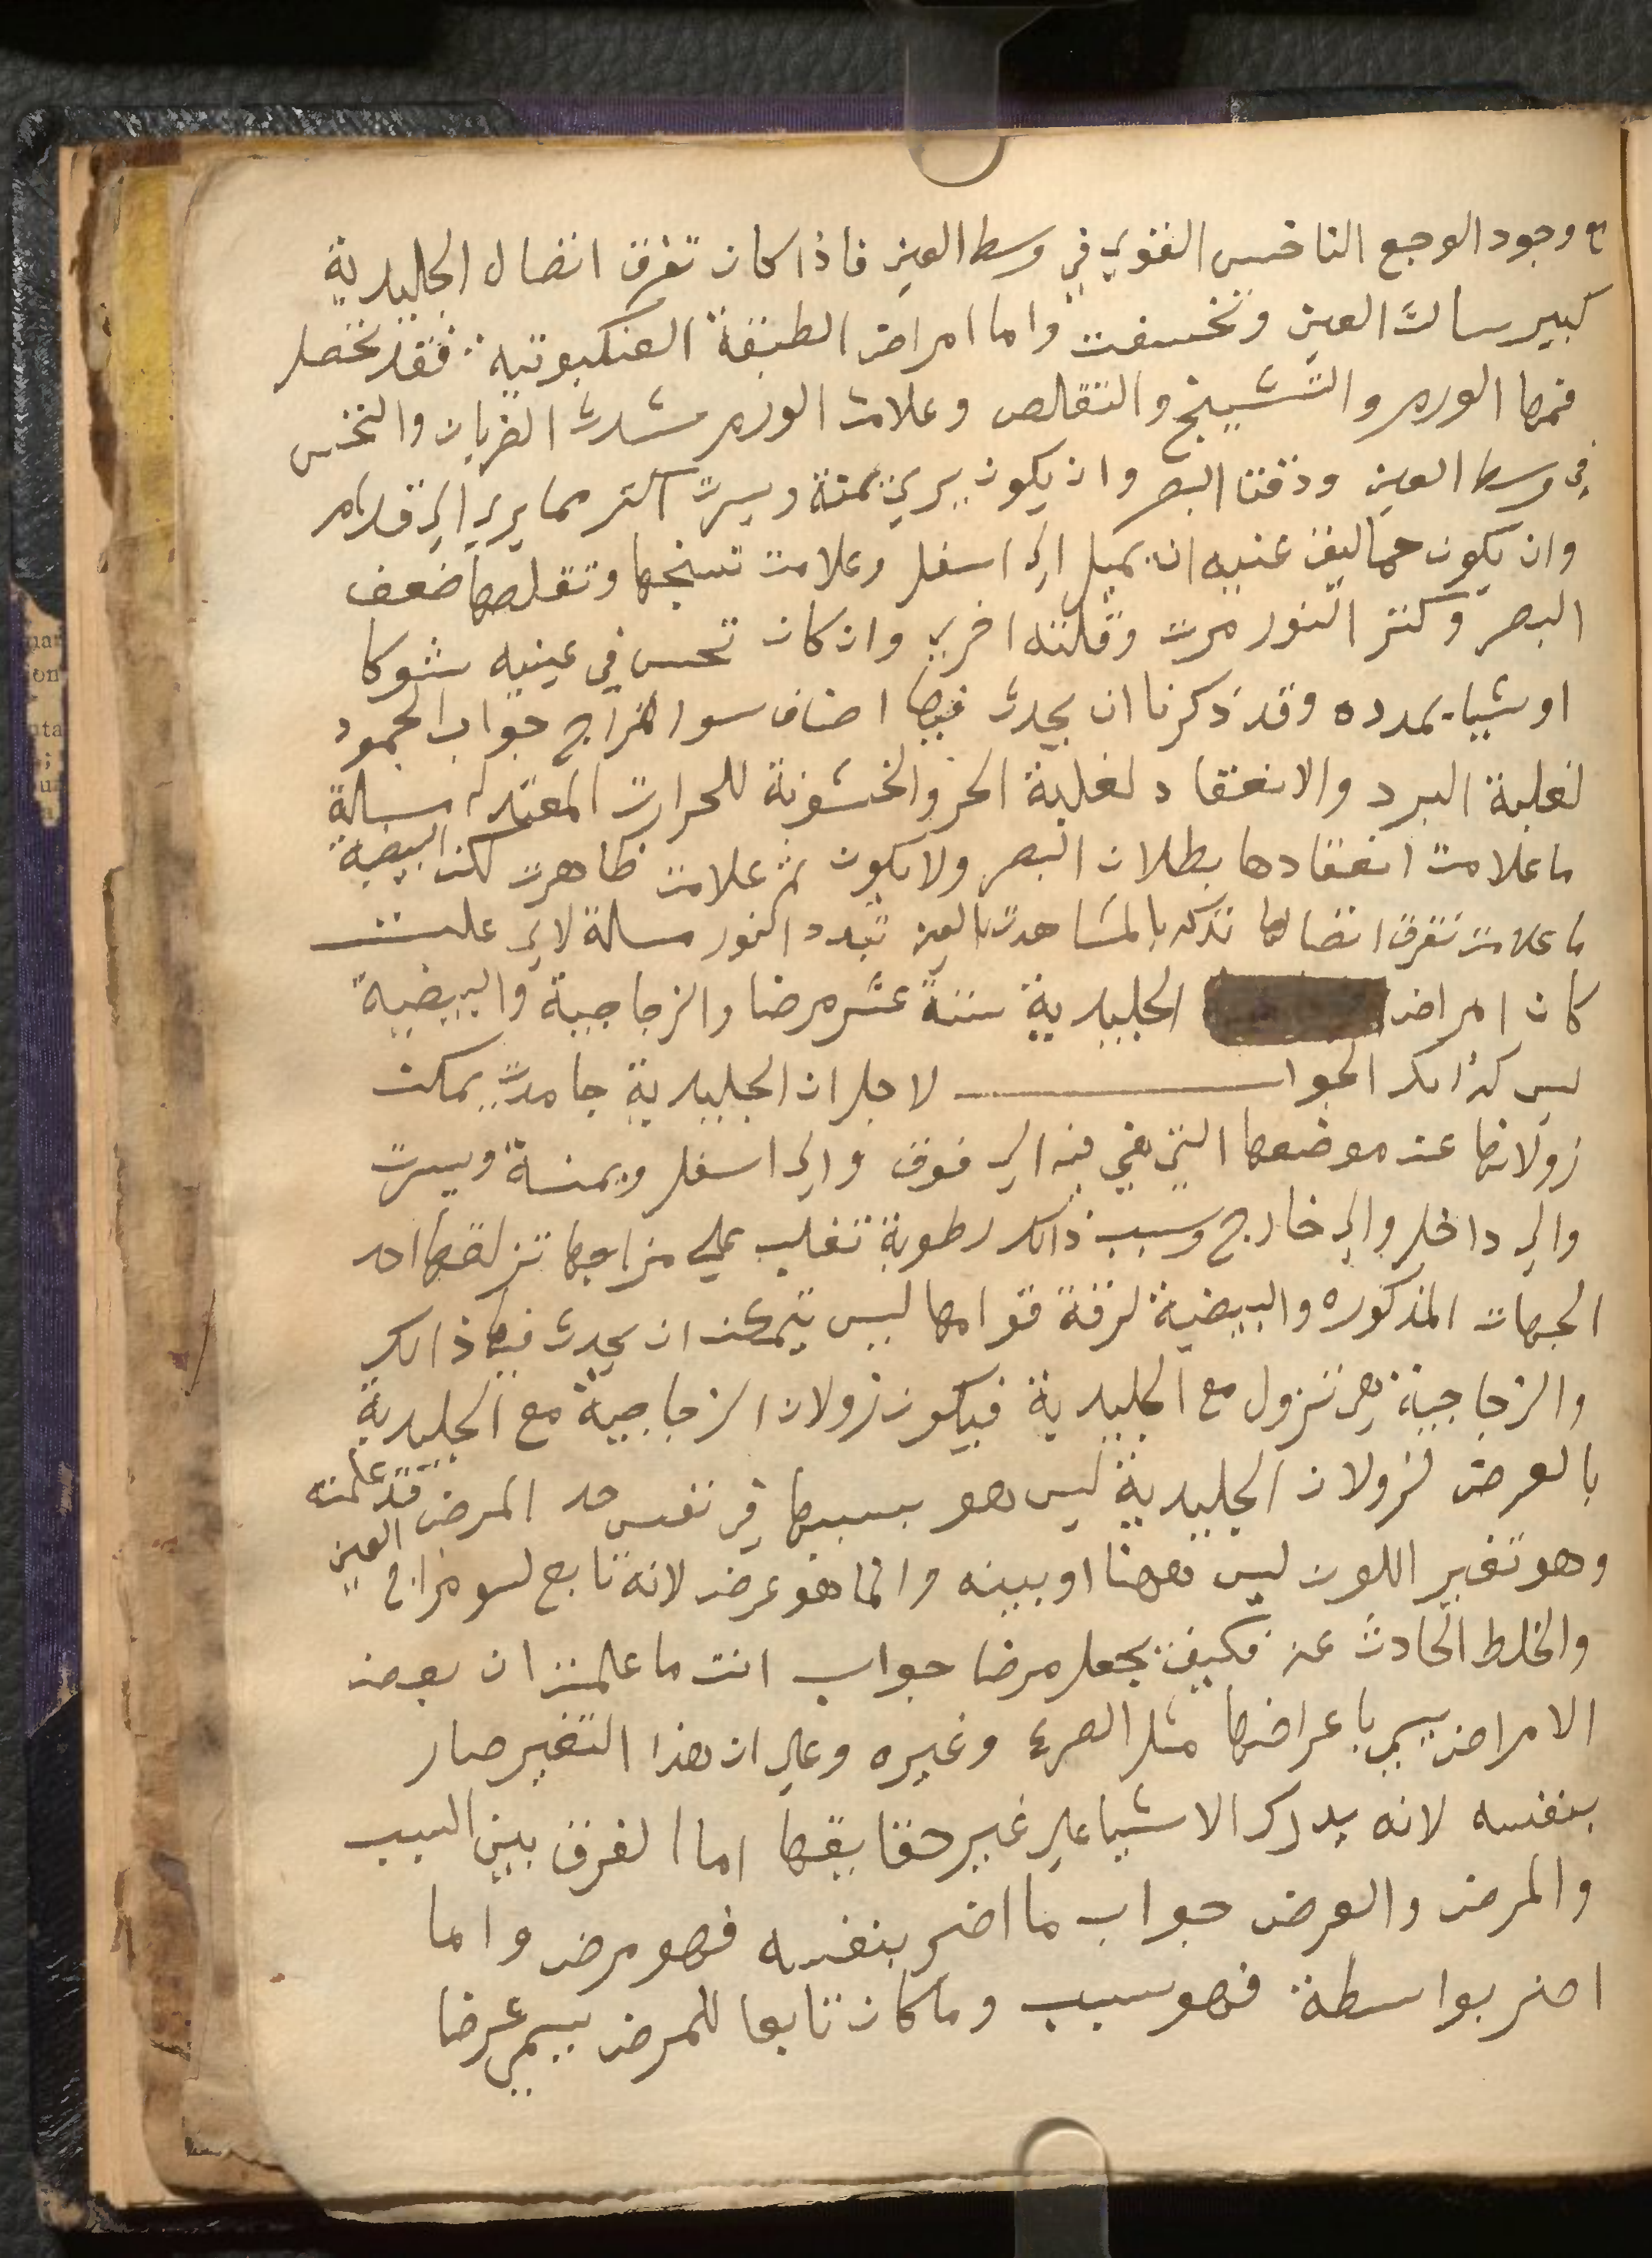 مع وجود الوجع الناخس القوي في وسط العين فاذا كان تفرق اتصال الجليدية
كبير سالت العين وتخسفت واما امراض الطبقة العنكبوتيه فقد تحصل
فمها الورم والتشينج والتقلص وعلامت الورم شدت الضربان والنخس
في وسط العين ودقت البصر وان يكون يري يمنة ويسرت اكتر مما يري الي قدام
وان يكون حماليق عنيه ان يميل الي اسفل وعلامت تسنجها وتقلصها ضعف
البصر وكتر النور مرت وقلته اخري وان كان تحس في عينيه شوكا
او شيا يمدده وقد ذكرنا ان يحدث فيها اصناف سوا المزاج جواب الجمود
لغلبة البرد والانعقاد لغلبة الحر والخشونة للحرارت المعتدله مسالة
ما علامت انعقادها بطلان البصر ولا يكون ثم علامت ظاهرت لكن البيضية
ما علامت تفرق اتصالها تدركه بالمشاهدت بالعين تبدد النور مسالة لاي علت
كان امراض الجليدية ستة عشر مرضا والزجاجية والبيضية
ليس كذالك الجواب لاجل ان الجليدية جامدت يمكن
زولانها عند موضعها التي هي فيه الي فوق والي اسفل ويمنة ويسرت
والي داخل والي خارج وسبب ذالك رطوبة تغلب علي مزاجها تزلقها احد
الجهات المذكوره والبيضية لرقة قوامها ليس يتمكن ان يحدث فيها ذالك
والزجاجية هي تزول مع الجليدية فيكون زولان الزجاجية مع الجليدية
بالعرض لزولان الجليدية ليس هو بسببها في نفس حد المرض قد علمته
وهو تغير اللون ليس ههنا اوبينه وانما هو عرض لانه تابع لسو مزاج العين
والخلط الحادث عنه فكيف يجعل مرضا جواب انت ما علمت ان بعض
الامراض يسمي باعراضها مثل الصرع وغيره وعلي ان هذا التغير صار
بنفسه لانه يدرك الاشيا علي غير حقايقها اما الفرق بين السبب
والمرض والعرض جواب ما اضر بنفسه فهو مرض واما
اضر بواسطة فهو سبب وما كان تابعا للمرض يسمي عرضا